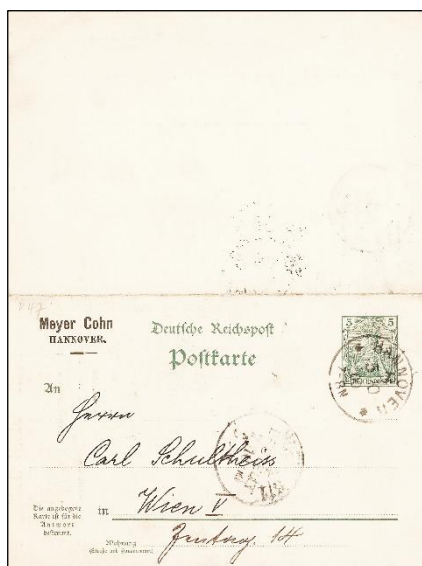 P 47
Meyer Cohn
HANNOVER.
Deutsche Reichspost
Postkarte
5 5
HANNOVER
An
Herrn
Carl Schultheiss
in Wien V
Die angebogene
Karte ist für die
Antwort
bestimmt.
Wohnung
(Straße und Hausnummer)
14